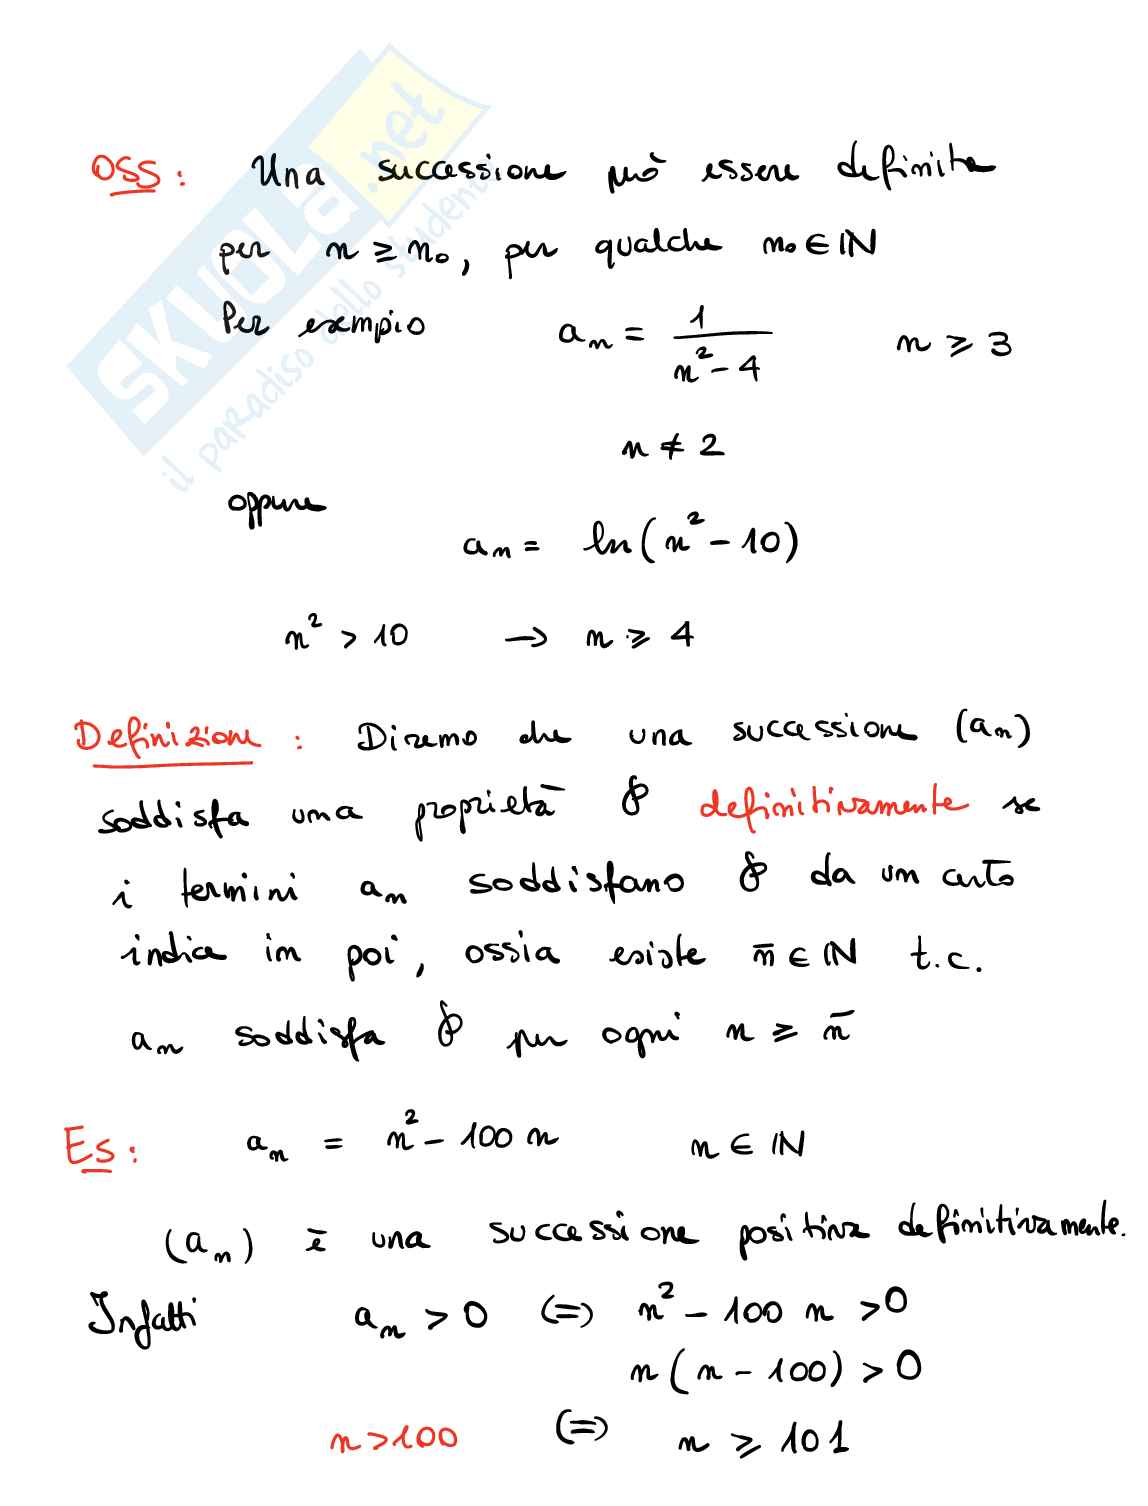 SKUOLA.net
il paradiso dello studente
OSS: Una successione può essere definita
per n ≥ n₀, per qualche n₀ ∈ ℕ
Per esempio aₙ = 1/(n² - 4) n ≥ 3
n ≠ 2
oppure
aₙ = ln(n² - 10)
n² > 10 → n ≥ 4
Definizione: Diremo che una successione (aₙ)
soddisfa una proprietà 𝒫 definitivamente se
i termini aₙ soddisfano 𝒫 da un certo
indice in poi, ossia esiste n̄ ∈ ℕ t.c.
aₙ soddisfa 𝒫 per ogni n ≥ n̄
Es: aₙ = n² - 100 n n ∈ ℕ
(aₙ) è una successione positiva definitivamente.
Infatti aₙ > 0 (=) n² - 100 n > 0
n(n - 100) > 0
n > 100 (=) n ≥ 101